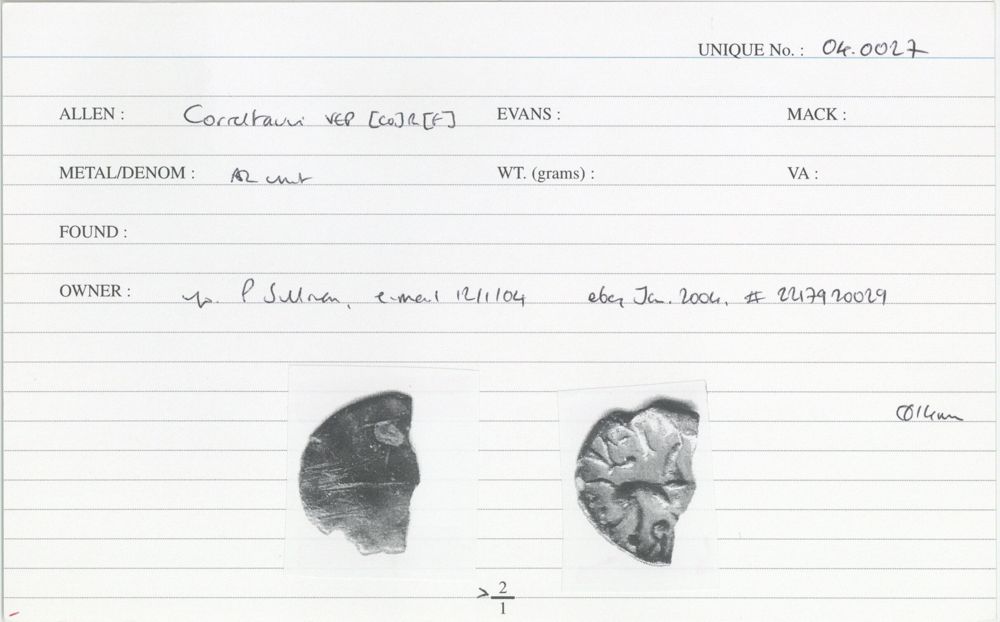 UNIQUE No. : 04.0027
ALLEN : Corieltauvi VEP [CO]R[F] EVANS : MACK :
METAL/DENOM : AR unit WT. (grams) : VA :
FOUND :
OWNER : P Sullivan, e-mail 12/1/04 ebay Jan. 2004, # 2217920029
Ø14mm
> 2
1